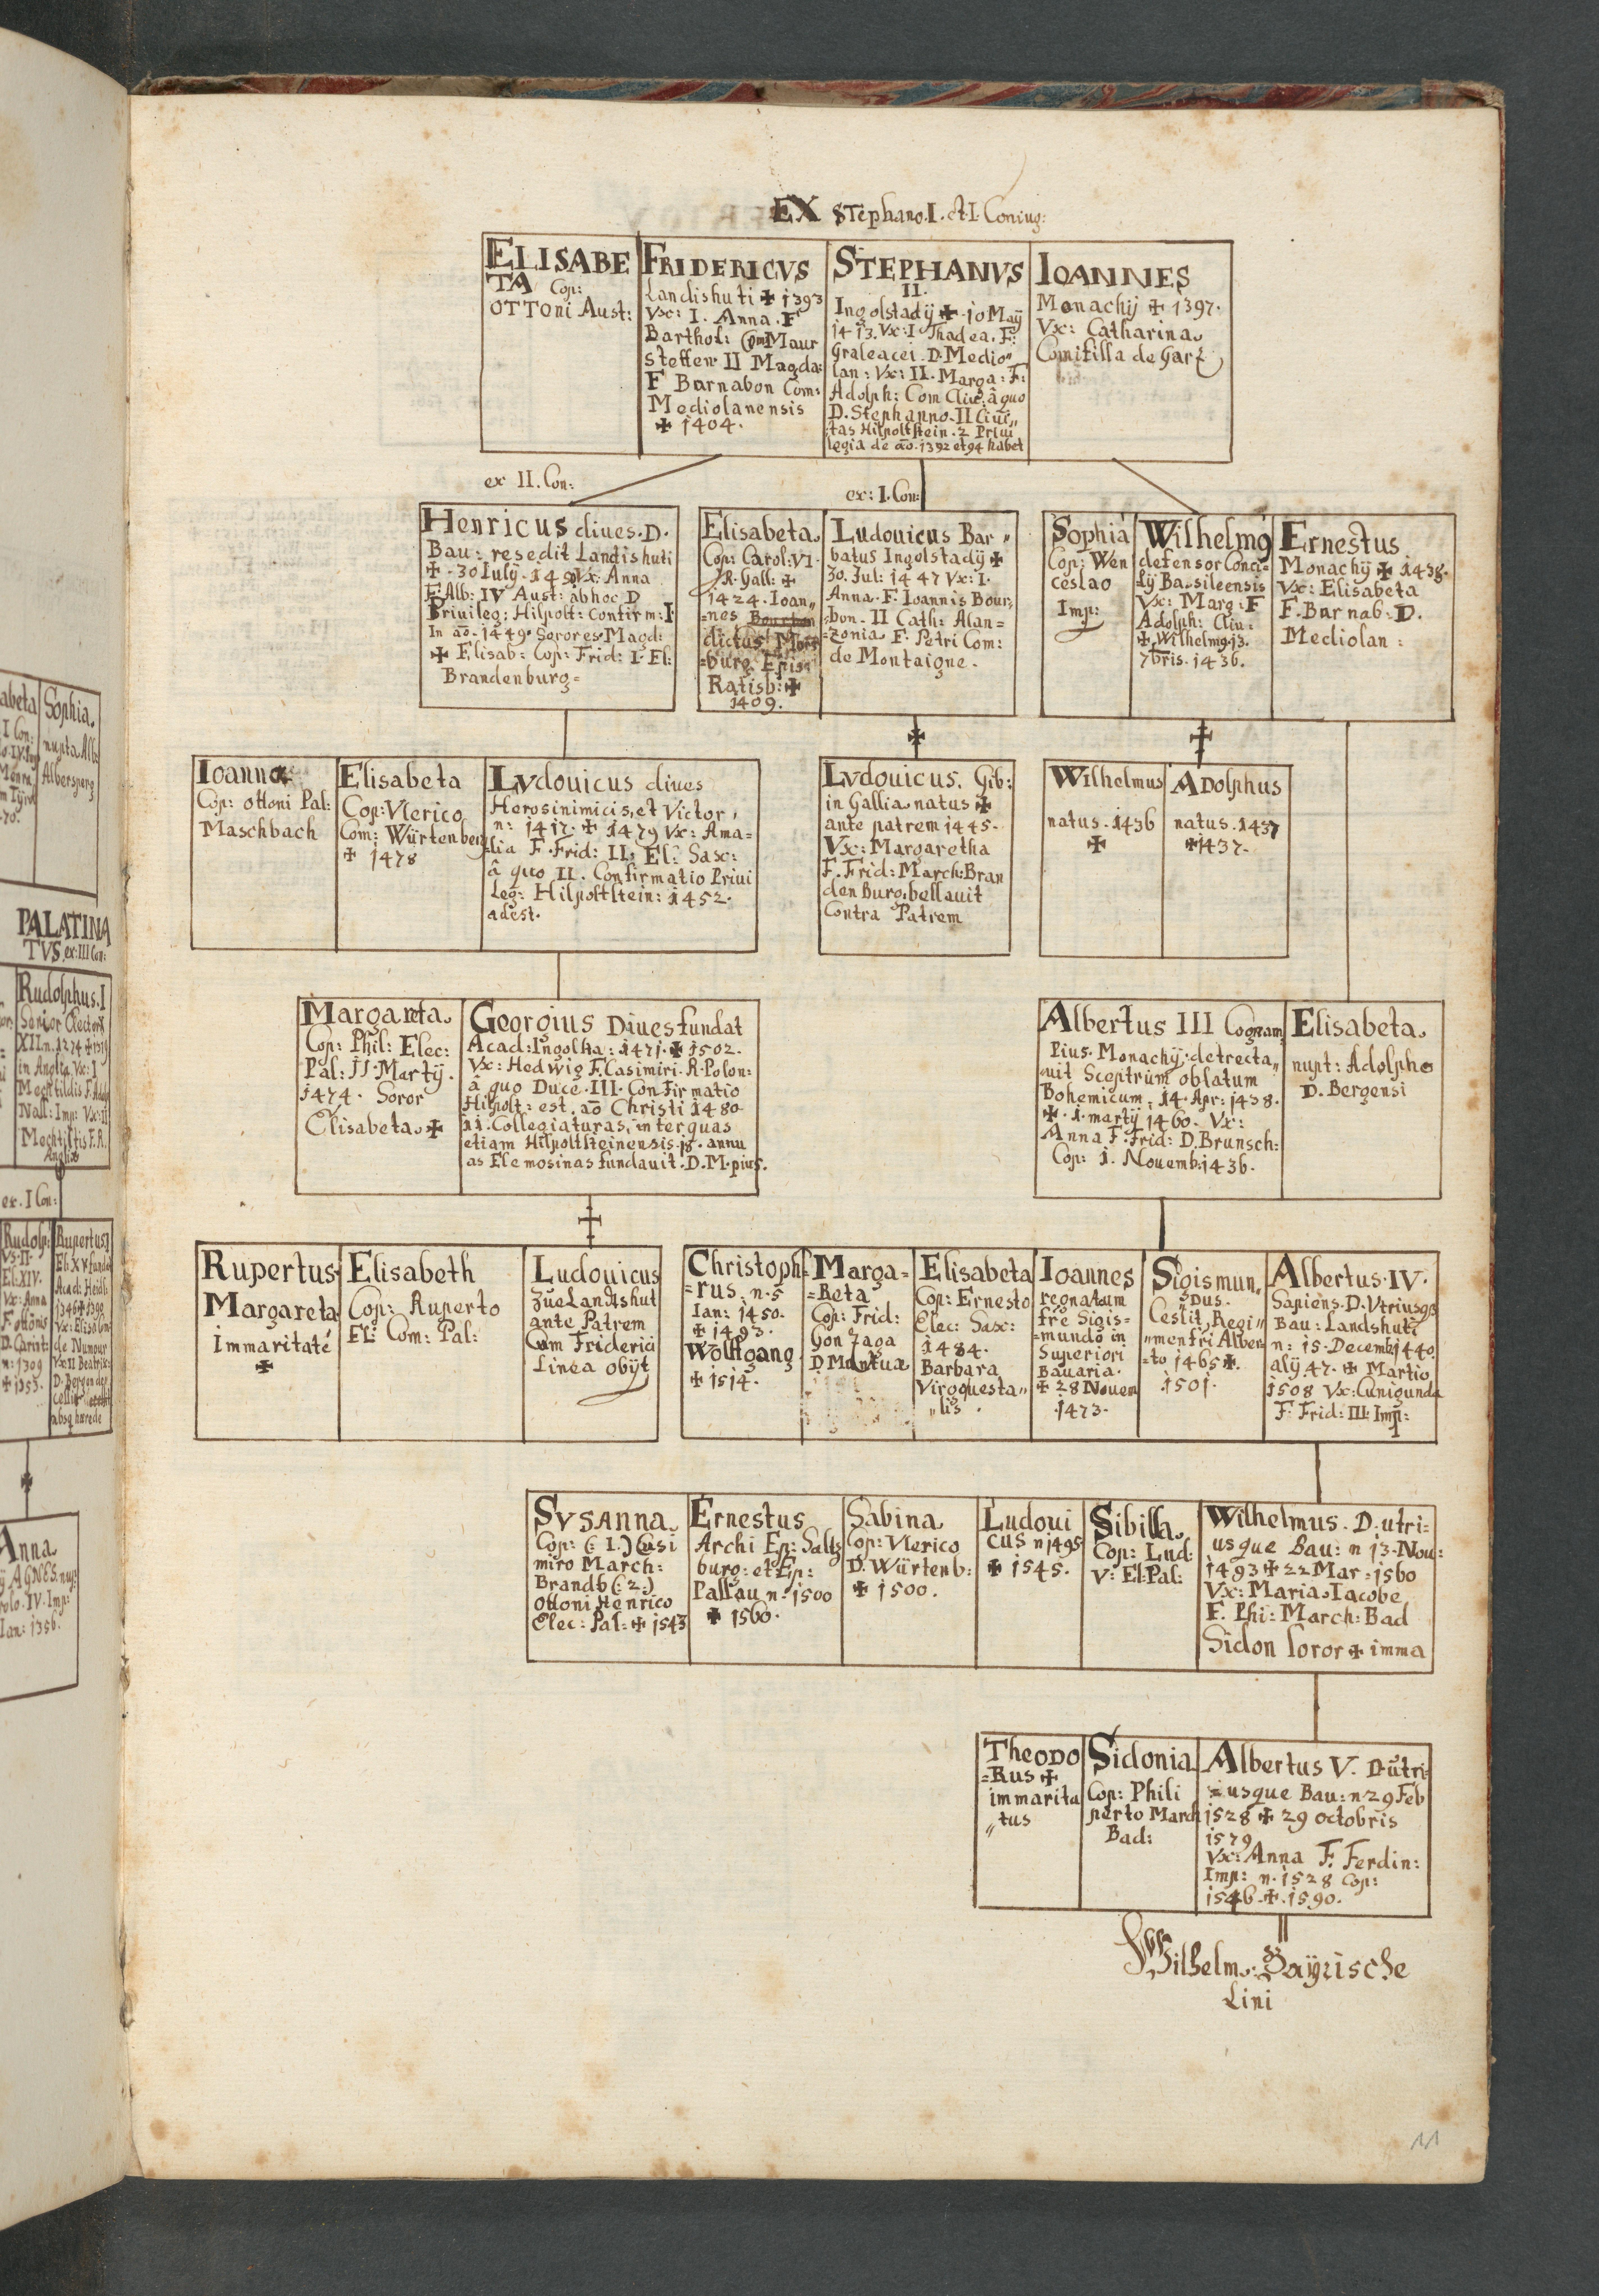 EX Stephano. I. et I. Coniug:
ELISABE
TA Cop:
OTToni Aust:
FRIDERICVS
Landishuti ✠ 1393
Vx: I. Anna. F
Barthol: Com Maur
steffen II Magda:
F Barnabon Com:
Mediolanensis
✠ 1404.
STEPHANVS
II.
Ingolstadij ✠ 10 Maÿ
1413. Vx: I Thadea. F:
Graleacei. D. Medio"
lan: Vx: II. Marga: F:
Adolph: Com Cliu: â quo
D. Stephanno. II Ciui„
tas Hilpoltstein. 2 Priui
legia de aō. 1392 et 94 habet
IOANNES
Monachij ✠ 1397.
Vx: Catharina
Comitissa de Garz
ex II. Con:
ex: I. Con:
Henricus diues. D.
Bau: resedit Landishuti
✠ . 30 Iulij. Vx: Anna
F: Alb: IV Aust: ab hoc D
Priuileg: Hilpolt: Confirm: I
In aō. 1449. Sorores Magd:
✠ Elisab: Cop: Frid: I. El:
Brandenburg=
Elisabeta.
Cop: Carol: VI.
R. Gall: ✠
1424. Ioan„
=nes Bourbon
dictus
=burg Episc
Ratisb: ✠
1409.
Ludouicus Bar"
batus Ingolstadij ✠
30. Jul: 1447 Vx: I.
Anna. F. Ioannis Bour:
bon. II Cath: Alan=
=zonia. F: Petri Com:
de Montaigne.
Sophia
Cop: Wen
ceslao
Imp:
Wilhelmq
defensor Conci=
lij Basileensis
Vx: Marg: F
Adolph: Cliu:
✠ Wilhelmq 13.
7bris. 1436.
Ernestus
Monachij ✠ 1438.
Vx: Elisabeta
F. Barnab. D.
Mediolan:
Ioanna
Cop: ottoni Pal:
Maschbach
Elisabeta
Cop: Vlerico
Com: Würtenberg
✠ 1478
Lvdouicus diues
Heros inimicis, et Victor,
n: 1417. ✠ 1479 Vx: Ama=
lia F. Frid: II. El: Sax:
â quo II. Confirmatio Priui
Leg: Hilpoltstein: 1452.
adest.
Lvdouicus. Gib:
in Gallia natus ✠
ante patrem 1445.
Vx: Margaretha
F. Frid: March: Bran
denburg. bellauit
Contra Patrem
Wilhelmus
natus. 1436
✠
Adolphus
natus. 1437
✠ 1437.
Margareta.
Cop: Phil: Elec:
Pal: 11. Martij.
1474. Soror
Elisabeta. ✠
Georgius Diues fundat
Acad: Ingolsta: 1471. ✠ 1502.
Vx: Hedwig F. Casimiri. R. Polon:
â quo Duce. III. Confirmatio
Hilpolt: est. aō Christi 1480
11. Collegiaturas, inter quas
etiam Hilpoltsteinensis. 18. annu
as Elemosinas fundauit. D. M. pius.
Albertus III Cognam
Pius. Monachij. detrecta„
uit Sceptrum oblatum
Bohemicum. 14. Apr: 1438.
✠ . 1. martij 1460. Vx:
Anna F. Frid: D. Brunsch:
Cop: 1. Nouemb: 1436.
Elisabeta.
nupt: Adolpho
D. Bergensi
Rupertus
Margareta
Immaritate
✠
Elisabeth
Cop: Ruperto
El: Com: Pal:
Ludouicus
Zue Landtshut
ante Patrem
Cum Friderici
Linea obijt
Christoph=
=rus. n. 5
Ian: 1450.
✠ 1493.
Wolffgang
✠ 1514.
Marga=
=Beta
Cop: Frid:
Gonzaga
D. Mantua
Elisabeta
Cop: Ernesto
Elec: Sax:
1484.
Barbara
Virgo questa"
"lis.
Ioannes
regnatum
fre Sigis=
=mundo in
Superiori
Bauaria.
✠ 28 Nouem
.1473.
Sigismun„
Dus.
Cessit Regi"
"men fri Alber
=to 1465 ✠.
1501.
Albertus. IV.
Sapiens. D. Vtriusqs
Bau: Landshuti
n: 15. Decemb 1440.
alij 47. ✠ Martio
1508 Vx: Cunigunda
F: Frid: III. Imp:
SVSANNA.
Cop: (: 1.) Casi
miro March:
Brandb (: 2.)
Ottoni Henrico
Elec: Pal: ✠ 1543
Ernestus
Archi Ep: Saltz
burg: et Ep:
Passau n: 1500
✠ 1560.
Sabina
Cop: Vlerico
D. Würtenb:
✠ 1500.
Ludoui
cus n 1495
✠ 1545.
Sibilla.
Cop: Lud:
V: El: Pal:
Wilhelmus. D. utri:
usque Bau: n 13. Nou:
1493 ✠ 22 Mar: 1560
Vx: Maria. Iacobe
F. Phi: March: Bad
Sidon soror ✠ imma
Theodo
=Rus ✠
immarita
"tus
Sidonia
Cop: Phili
perto March
Bad:
Albertus V. D. utri=
=usque Bau: n. 29 Feb
1528 ✠ 29 octobris
1579
Vx: Anna F. Ferdin:
Imp: n. 1528 Cop:
1546. ✠. 1590.
Wilhelm: Bayrische
Lini
11
abeta
I Con:
Sophia.
nupta Alb
Albersperg
PALATINA
TVS ex: III Con:
Rudolphus. I
Senior Elector
XII n. 1274 ✠ 1319
in Anglia. Vx: I
Mechtildis F. Adol
Nass: Imp: Vx: II
Mechtiltis F. R.
Angliæ
ex. I Con:
Rudolp:
Vs. II.
El: XIV.
Vx: Anna
F. ottonis
D. Carint:
n: 1309
✠ 1353.
Rupertus I
El: XV funda
Acad: Heidl:
1346 ✠ 1390
Vx: Elisabe
de Namour
Vx: II Beatrix:
D. Bergen
absq hærede
Anna
AGNES. nup:
rolo. IV. Imp:
Ian: 1356.